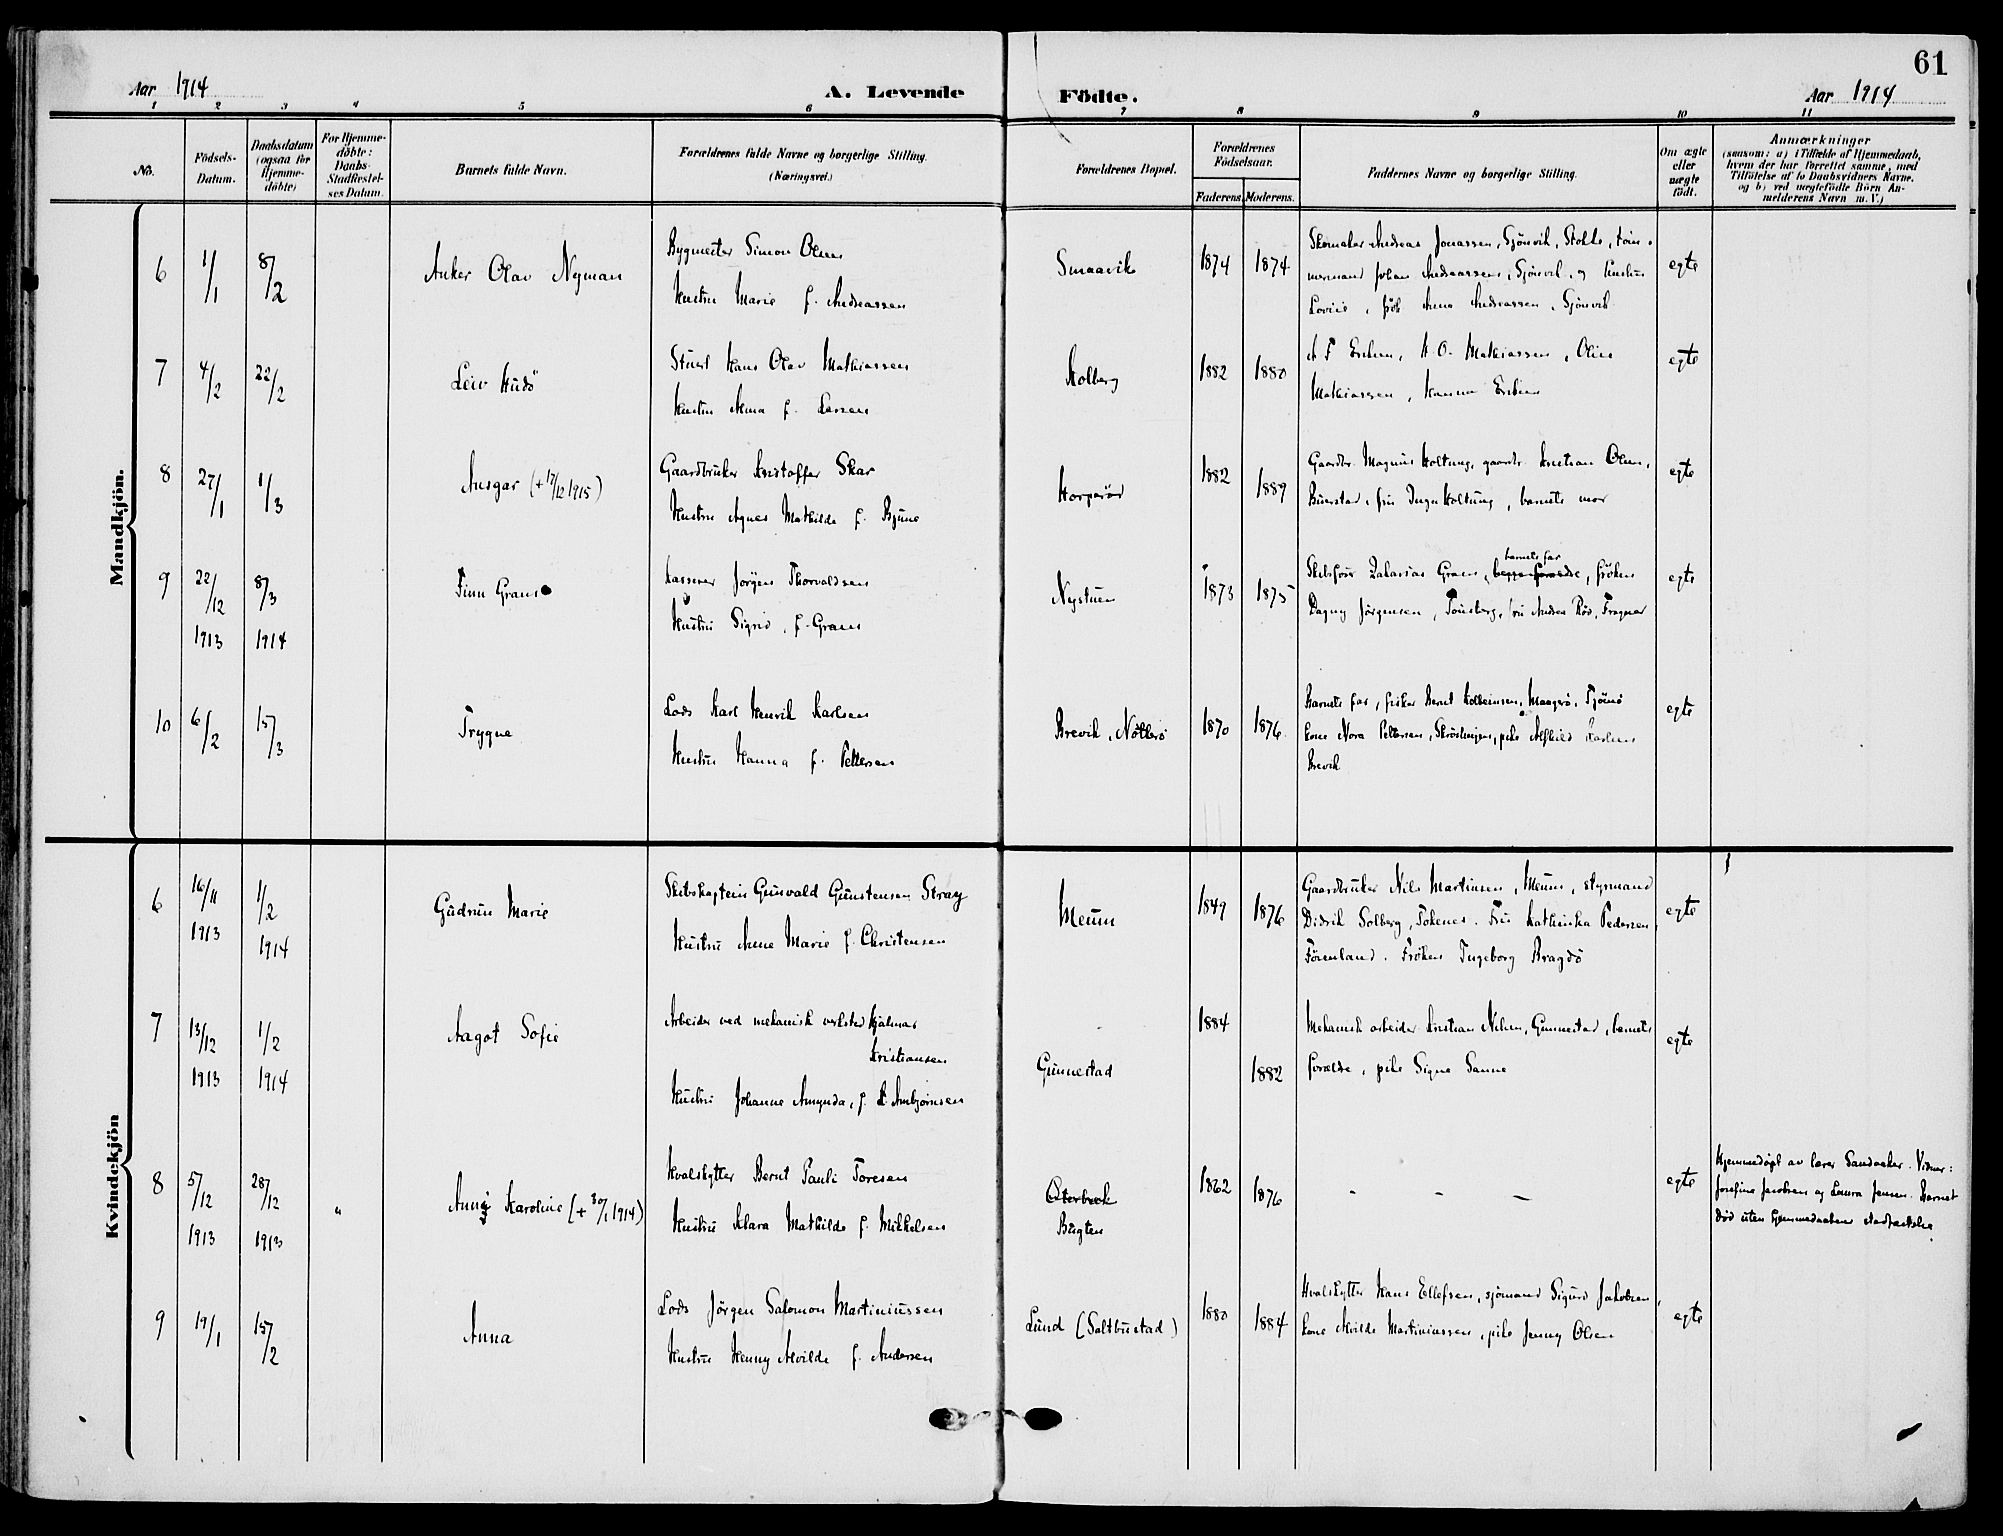 61
Aar 1914
A. Levende Födte.
Aar 1914
1 2 3 4 5 6 7 8 9 10 11
No.
Födsels-
Datum.
Daabsdatum
(ogsaa for
Hjemme-
döbte)
For Hjemme-
döbte:
Daabs-
Stadfæstel-
ses Datum.
Barnets fulde Navn.
Forældrenes fulde Navne og borgerlige Stilling.
(Næringsvei.)
Forældrenes Bopæl.
Forældrenes
Födselsaar.
Faderens Moderens.
Faddernes Navne og borgerlige Stilling.
Om ægte
eller
uægte
födt.
Anmærkninger
(saasom: a) i Tilfælde af Hjemmedaab,
hvem der har forrettet samme, med
Tilföielse af to Daabsvidners Navne,
og b) ved uægtefödte Börn An-
melderens Navn m. V.)
Mandkjön.
6 1/1 8/2 Anker Olav Nyman
Bygmester Simon Olsen
Hustru Marie f. Andreassen
Smaavik 1874 1874
Skomaker Andreas Jonassen, Sjönvik, Stokke, töm-
mermand Johan Andreassen, Sjönvik, og
frök Anna Andreassen, Sjönvik
egte
7 4/2 22/2 Leiv Hudö
Stuert Hans Olav Mathiassen
Hustru Alma f. Larsen
Holberg 1882 1880
H. O. Mathiassen,
Mathiassen, Hanna
egte
8 27/1 1/3 Ansgar (+ 17/12 1915)
Gaardbruker Kristoffer Skar
Hustru Agnes Mathilde f. Bjune
1882 1889
Gaardbr. Magnus Holtung, gaardbr. Kristian Olsen,
fru Inga Holtung, barnets mor
egte
9 22/12 1913 8/3 1914 Finn Gram
Kasserer Jörgen Thorvaldsen
Hustru Sigrid, f. Gram
Nystuen 1873 1875
barnets far
Skibsförer Zakarias Gram, fröken
Dagny Jörgensen, Tönsberg, fru Andrea Röd, Fragner
egte
10 6/2 15/3 Trygve
Lods Karl Henrik Karlsen
Hustru Hanna f. Pettersen
Brevik, Nötterö 1870 1876
Barnets far, fisker Bernt Kolbeinsen, Maagerö, Tjömö
kone Nora Pettersen, pike Alfhild Karlsen
Brevik
egte
Kvindekjön
6 16/11 1913 1/2 1914 Gudrun Marie
Skibskaptein Gunvald Gunstensen Stray
Hustru Anne Marie f. Christensen
Meum 1849 1876
Gaardbruker Nils Martinsen, Meum, styrmand
Didrik Solberg, Tokenes. Fru Kathinka Pedersen,
Föienland. Fröken Ingeborg Bragdö
egte
7 13/12 1913 1/2 1914 Aagot Sofie
Arbeider ved mekanisk verksted Hjalmar
Kristiansen
Hustru Johanne Amynda, f. Ambjörnsen
Gunnestad 1884 1882
Mekanisk arbeider Kristian Nilsen, Gunnestad, barnets
forældre, pike Signe Sanne
egte
8 5/12 1913 28/12 1913 " Anny Karoline (+ 30/1 1914)
Hvalskytter Bernt Pauli Toresen
Hustru Klara Mathilde f. Mikkelsen
Österbæk
Bugten
1862 1876
- - -
egte
Hjemmedöpt av lærer Sandaker. Vidner:
Josefine Jacobsen og Laura Jensen. Barnet
död uten hjemmedaabens stadfæstelse.
9 19/1 15/2 Anna
Lods Jörgen Salomon Martiniussen
Hustru Henny Alvilde f. Andersen
Lund (Saltbustad) 1880 1884
Hvalskytter Hans Ellefsen, sjömand Sigurd Jakobsen,
kone Alvilde Martiniussen, pike Jenny Olsen
egte